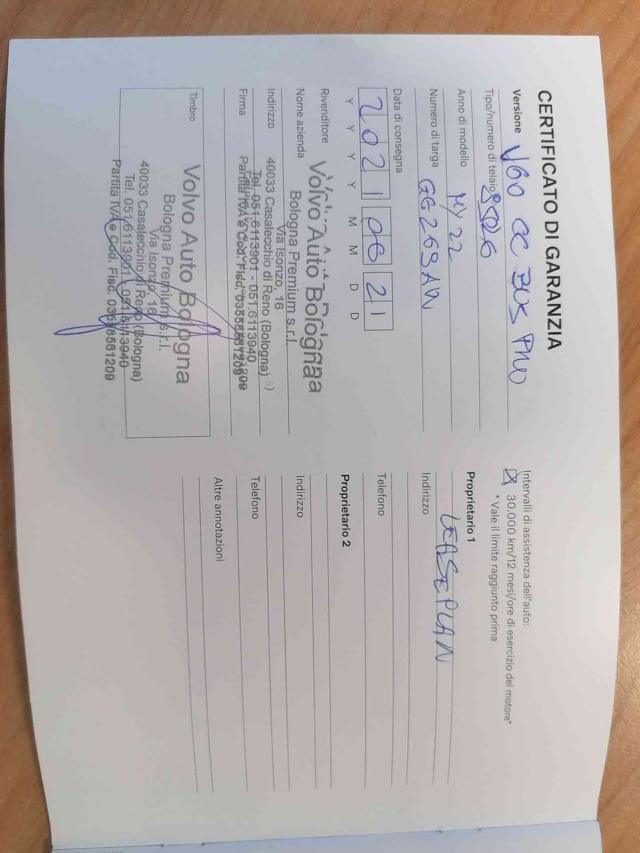 CERTIFICATO DI GARANZIA
Versione V60 CC
Tipo/numero di telaio
Anno di modello MY 22
Numero di targa GG269AW
Data di consegna
2021 06 21
Y Y Y Y M M D D
Rivenditore
Nome azienda
Volvo Auto Bologna
Bologna Premium s.r.l.
Via Isonzo, 16
Indirizzo 40033 Casalecchio di Reno (Bologna)
Tel. 051.6113901 - 051.6113940
Firma Partita IVA e Cod. Fisc.
Timbro
Volvo Auto Bologna
Bologna Premium s.r.l.
Via Isonzo, 16
40033 Casalecchio di Reno (Bologna)
Tel. 051.6113901 - 051.6113940
Partita IVA e Cod. Fisc.
Intervalli di assistenza dell'auto:
30.000 km/12 mesi/ore di esercizio del motore*
* Vale il limite raggiunto prima
Proprietario 1
LEASEPLAN
Indirizzo
Telefono
Proprietario 2
Indirizzo
Telefono
Altre annotazioni